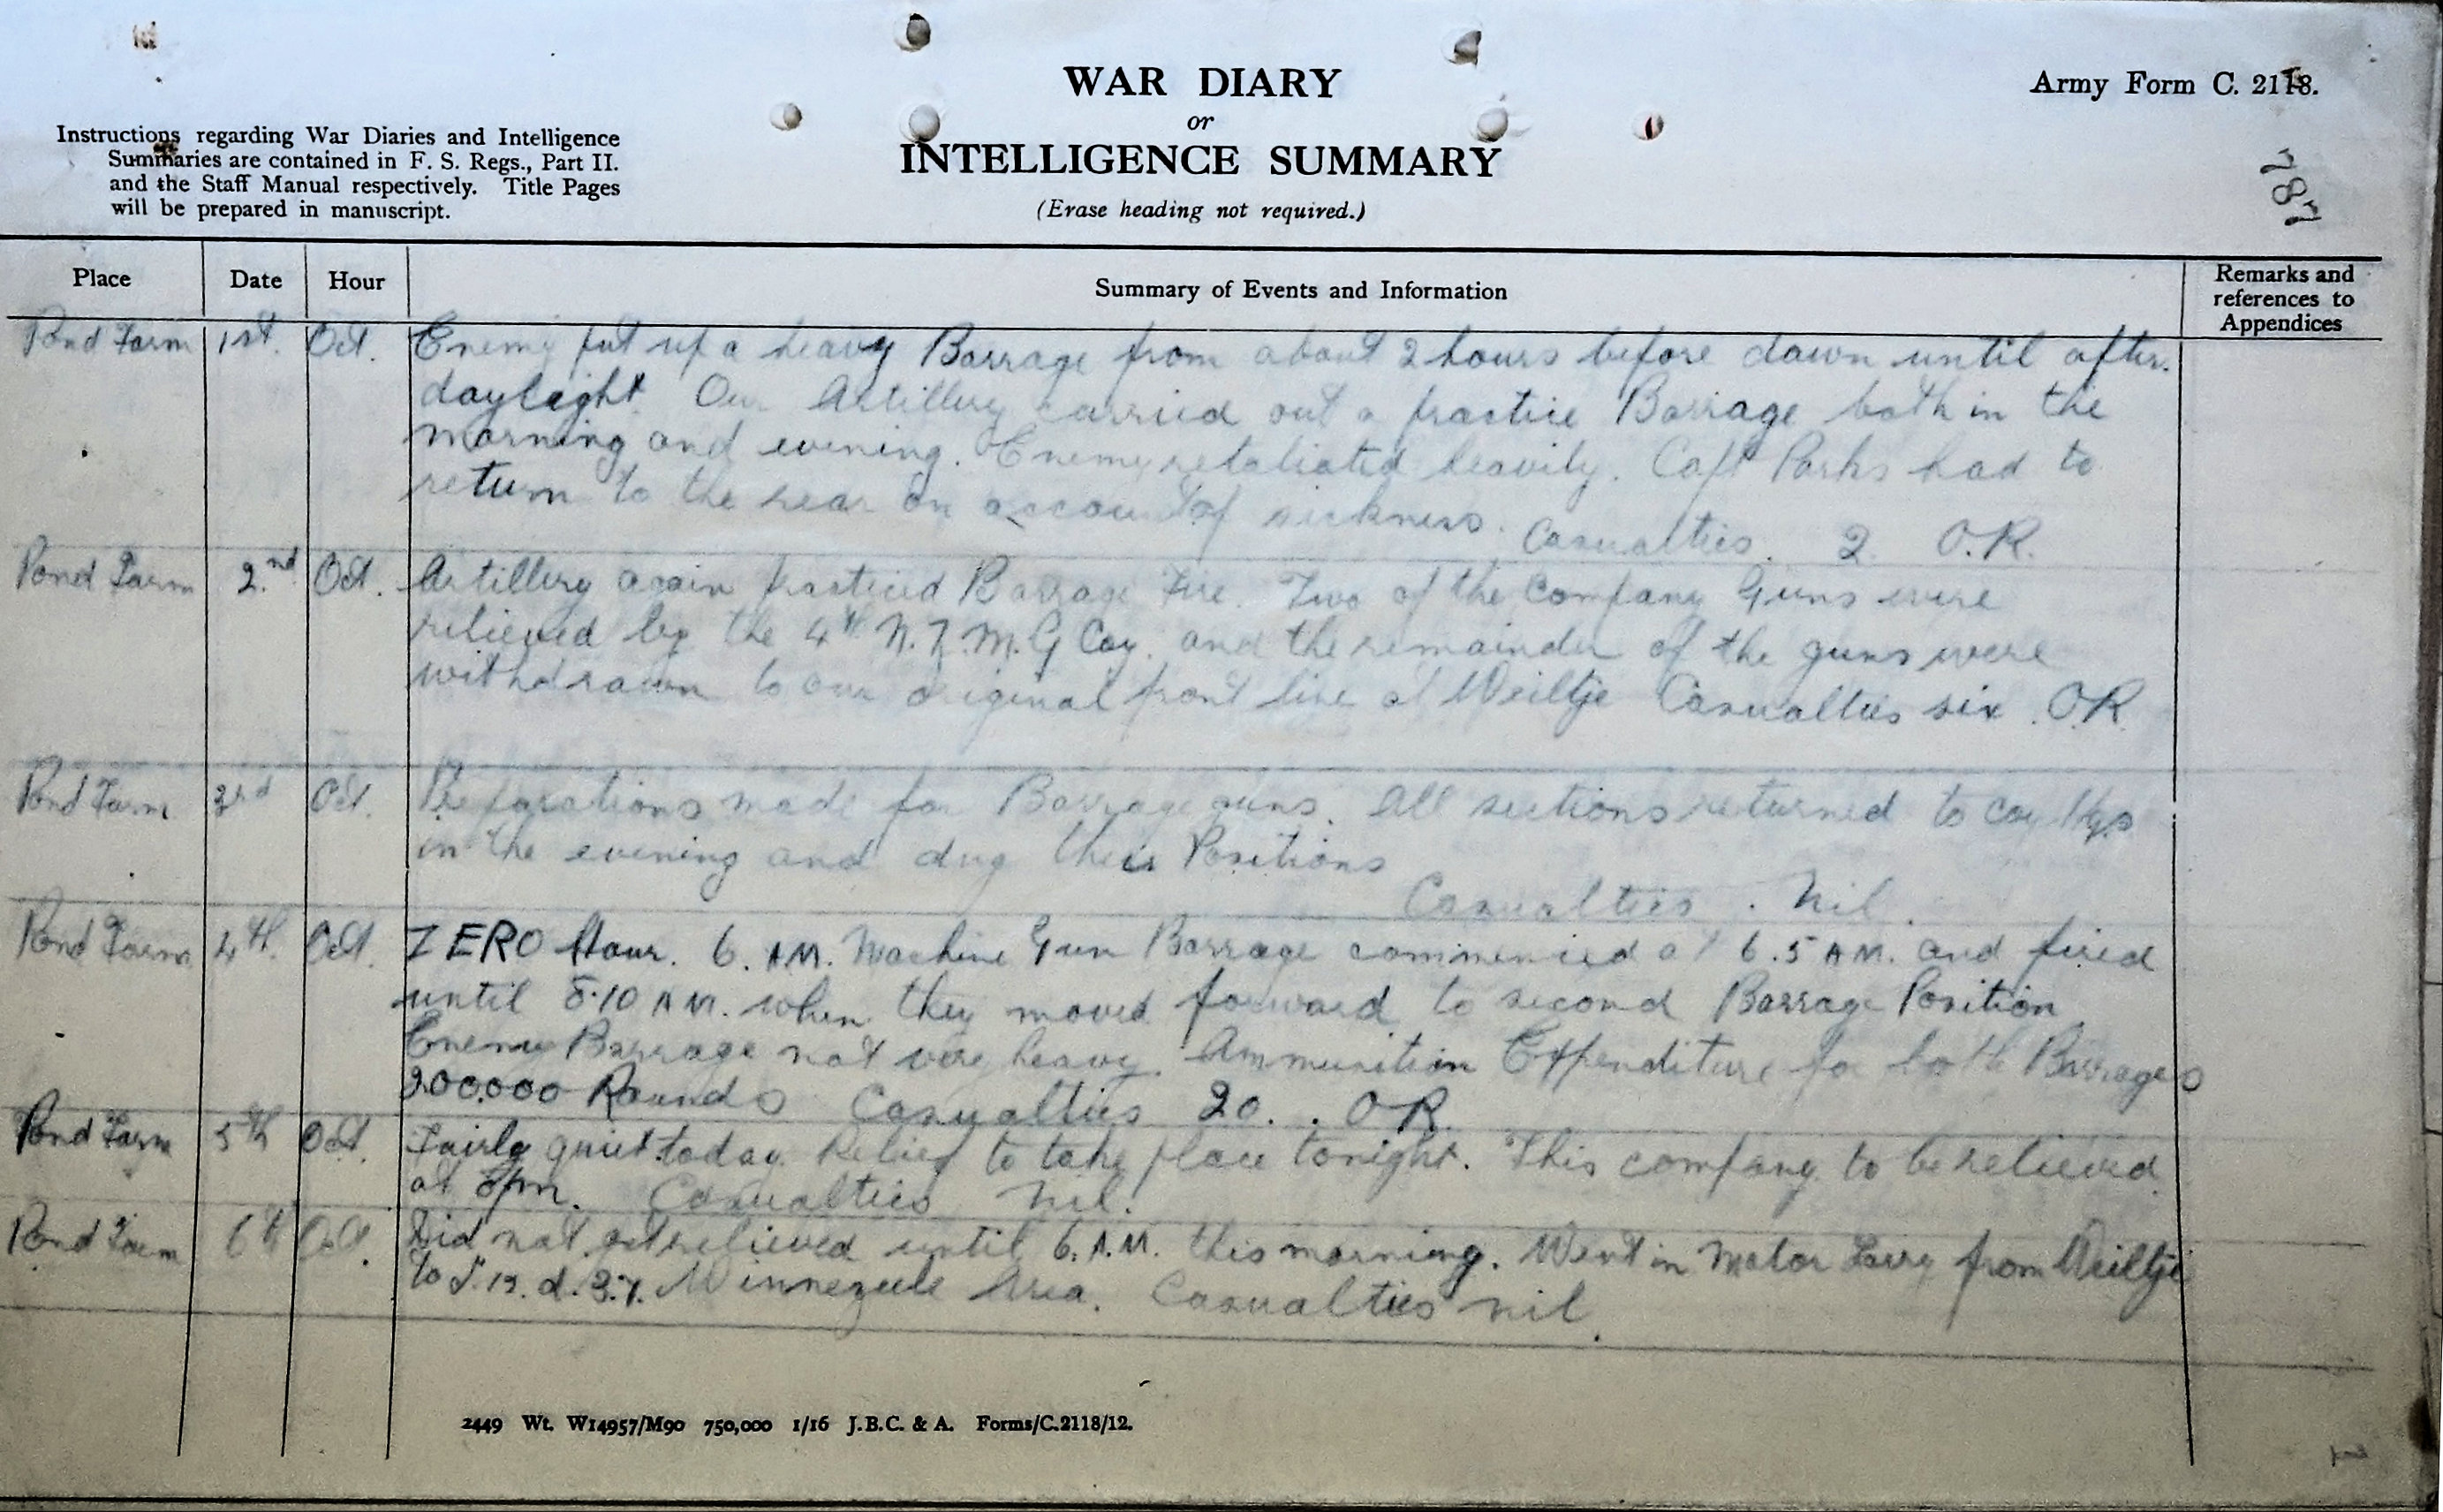 WAR DIARY
or
INTELLIGENCE SUMMARY
(Erase heading not required.)
Army Form C. 2118.
787
Instructions regarding War Diaries and Intelligence
Summaries are contained in F. S. Regs., Part II.
and the Staff Manual respectively. Title Pages
will be prepared in manuscript.
Place Date Hour Summary of Events and Information Remarks and references to Appendices
Pond Farm 1st. Oct. Enemy put up a heavy Barrage from about 2 hours before dawn until after
daylight. Our Artillery carried out a practice Barrage both in the
morning and evening. Enemy retaliated heavily. Capt Parks had to
return to the rear on account of sickness. Casualties. 2. O.R.
Pond Farm 2.nd Oct. Artillery again practiced Barrage Fire. Two of the Company Guns were
relieved by the 4th N.Z.M.G Coy. and the remainder of the guns were
withdrawn to our original front line at Weiltje Casualties six. O.R
Pond Farm 3rd Oct. Preparations made for Barrage guns. All sections returned to Coy Hqs
in the evening and dug their Positions
Casualties. Nil.
Pond Farm 4th. Oct. ZERO Hour. 6. AM. Machine Gun Barrage commencied at 6.5 AM. and fired
until 8.10 AM. when they moved forward to second Barrage Position
Enemy Barrage not very heavy. Ammunition Expenditure for both Barrages
200.000 Rounds Casualties 20. . OR.
Pond Farm 5th Oct. Fairly quiet today. Relief to take place tonight. This company to be relieved
at 8pm. Casualties Nil.
Pond Farm 6th Oct. Did not get relieved until 6. A.M. this morning. Went in Motor Lorry from Weiltje
to d. 3.7. Winnezeele Area. Casualties nil.
2449 Wt. W14957/M90 750,000 1/16 J.B.C. & A. Forms/C.2118/12.